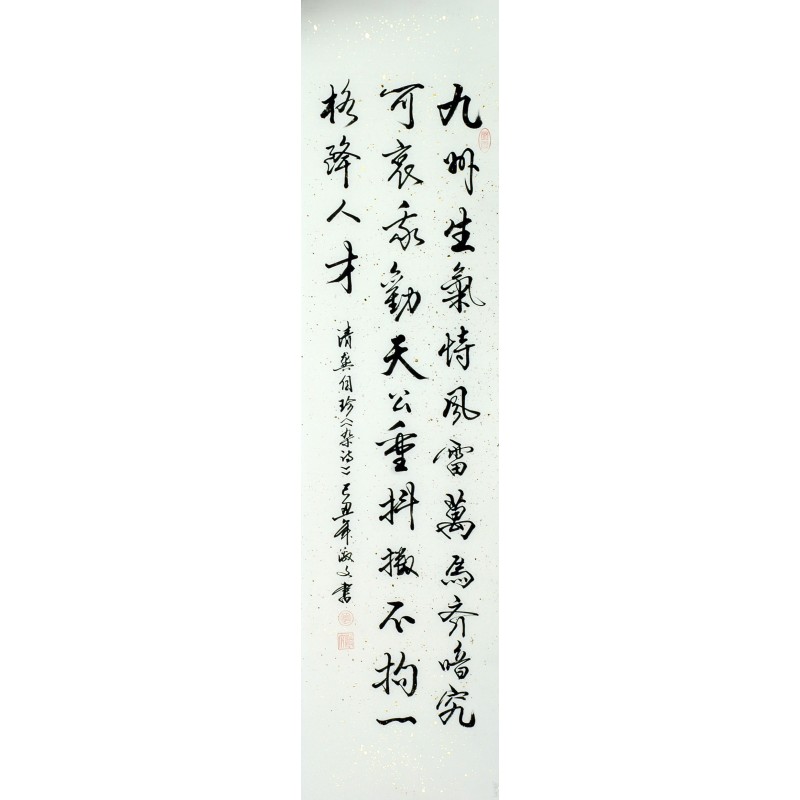 九州生氣恃風雷萬馬齐喑究
可哀我勸天公重抖擞不拘一
格降人才
清龚自珍《杂诗》己丑年淑文書